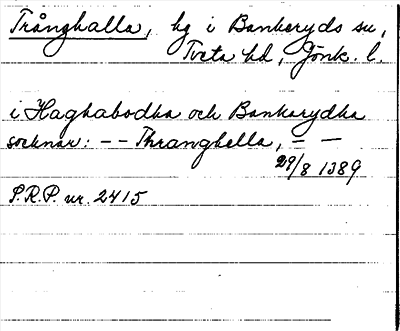 Trånghalla, hg i Bankeryds sn,
Tveta hd, Jönk. l.
i Haghabodha och Bankarydha
socknar: -- Thranghella, - -
29/8 1389
S.R.P. nr. 2415